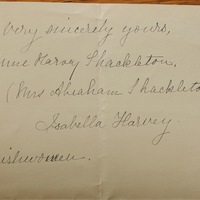 very sincerely yours,
nne Harvy Shackleton.
(Mrs Abraham Shackleto
Isabella Harvey.
ishwomen.